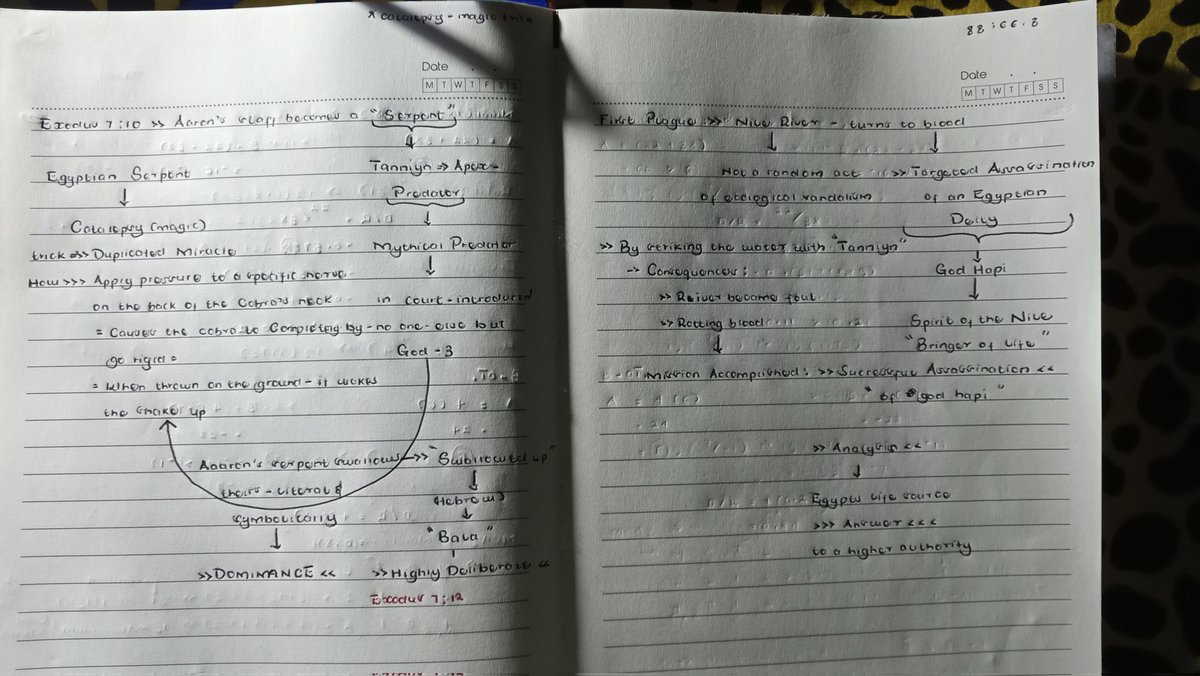 * catalepsy - magic trick
Date
M T W T F S S
Exodus 7:10 >> Aaron's staff becomes a "Serpent"
Egyptian Serpent
↓
Catalepsy (magic)
trick => Duplicated Miracle
How >>> Apply pressure to a specific nerve
on the back of the Cobra's neck
= Causes the cobra to Completely
go rigid =
= When thrown on the ground - it wakes
the snake up
Tanniyn => Apex -
Predator
↓
Mythical Predator
↓
in court - introduced
by - no one - else but
God - 3
Aaaron's serpent swallows ->> "Swallowed up"
theirs - literal &
symbolically
↓
>> DOMINANCE <<
↓
(Hebrew)
↓
"Bala"
>> Highly Deliberate <<
Exodus 7:12
88:66.3
Date
M T W T F S S
First Plague >> Nile River - turns to blood
↓ ↓
Not a random act
of ecological vandalism
>> Targeted Assassination
of an Egyptian
Deity
↓
God Hapi
↓
Spirit of the Nile
"Bringer of Life"
>> By striking the water with "Tanniyn"
-> Consequences:
>> Reiver became foul
>> Rotting blood
↓
Mission Accomplished: >> Successful Assassination <<
"of god hapi"
>> Analysis <<
↓
Egypts life source
>>> Answer <<<
to a higher authority